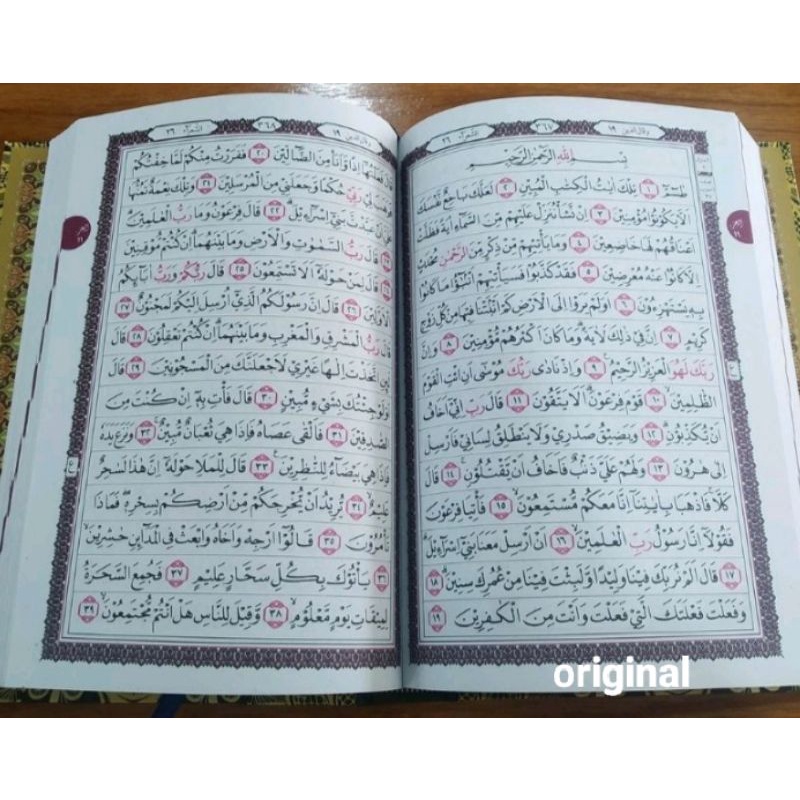 وقال الذين ١٩
٣٦٧
الشعرآء ٢٦
بِسْمِ اللّٰهِ الرَّحْمٰنِ الرَّحِيْمِ
طٰسۤمّۤ ١ تِلْكَ اٰيٰتُ الْكِتٰبِ الْمُبِيْنِ ٢ لَعَلَّكَ بَاخِعٌ نَّفْسَكَ
اَلَّا يَكُوْنُوْا مُؤْمِنِيْنَ ٣ اِنْ نَّشَأْ نُنَزِّلْ عَلَيْهِمْ مِّنَ السَّمَاۤءِ اٰيَةً فَظَلَّتْ
اَعْنَاقُهُمْ لَهَا خَاضِعِيْنَ ٤ وَمَا يَأْتِيْهِمْ مِّنْ ذِكْرٍ مِّنَ الرَّحْمٰنِ مُحْدَثٍ
اِلَّا كَانُوْا عَنْهُ مُعْرِضِيْنَ ٥ فَقَدْ كَذَّبُوْا فَسَيَأْتِيْهِمْ اَنْۢبٰۤؤُا مَا كَانُوْا
بِهٖ يَسْتَهْزِءُوْنَ ٦ اَوَلَمْ يَرَوْا اِلَى الْاَرْضِ كَمْ اَنْۢبَتْنَا فِيْهَا مِنْ كُلِّ زَوْجٍ
كَرِيْمٍ ٧ اِنَّ فِيْ ذٰلِكَ لَاٰيَةً ۗوَمَا كَانَ اَكْثَرُهُمْ مُّؤْمِنِيْنَ ٨ وَاِنَّ
رَبَّكَ لَهُوَ الْعَزِيْزُ الرَّحِيْمُ ٩ وَاِذْ نَادٰى رَبُّكَ مُوْسٰٓى اَنِ ائْتِ الْقَوْمَ
الظّٰلِمِيْنَ ١٠ قَوْمَ فِرْعَوْنَ ۗاَلَا يَتَّقُوْنَ ١١ قَالَ رَبِّ اِنِّيْٓ اَخَافُ
اَنْ يُّكَذِّبُوْنِ ١٢ وَيَضِيْقُ صَدْرِيْ وَلَا يَنْطَلِقُ لِسَانِيْ فَاَرْسِلْ
اِلٰى هٰرُوْنَ ١٣ وَلَهُمْ عَلَيَّ ذَنْۢبٌ فَاَخَافُ اَنْ يَّقْتُلُوْنِ ١٤ قَالَ
كَلَّا ۚفَاذْهَبَا بِاٰيٰتِنَآ اِنَّا مَعَكُمْ مُّسْتَمِعُوْنَ ١٥ فَأْتِيَا فِرْعَوْنَ
فَقُوْلَآ اِنَّا رَسُوْلُ رَبِّ الْعٰلَمِيْنَ ١٦ اَنْ اَرْسِلْ مَعَنَا بَنِيْٓ اِسْرَاۤءِيْلَ
١٧ قَالَ اَلَمْ نُرَبِّكَ فِيْنَا وَلِيْدًا وَّلَبِثْتَ فِيْنَا مِنْ عُمُرِكَ سِنِيْنَ ١٨
وَفَعَلْتَ فَعْلَتَكَ الَّتِيْ فَعَلْتَ وَاَنْتَ مِنَ الْكٰفِرِيْنَ ١٩
وقال الذين ١٩
٣٦٨
الشعرآء ٢٦
قَالَ فَعَلْتُهَآ اِذًا وَّاَنَا۠ مِنَ الضَّاۤلِّيْنَ ٢٠ فَفَرَرْتُ مِنْكُمْ لَمَّا خِفْتُكُمْ
فَوَهَبَ لِيْ رَبِّيْ حُكْمًا وَّجَعَلَنِيْ مِنَ الْمُرْسَلِيْنَ ٢١ وَتِلْكَ نِعْمَةٌ تَمُنُّهَا
عَلَيَّ اَنْ عَبَّدْتَّ بَنِيْٓ اِسْرَاۤءِيْلَ ٢٢ قَالَ فِرْعَوْنُ وَمَا رَبُّ الْعٰلَمِيْنَ
٢٣ قَالَ رَبُّ السَّمٰوٰتِ وَالْاَرْضِ وَمَا بَيْنَهُمَا ۗاِنْ كُنْتُمْ مُّوْقِنِيْنَ
٢٤ قَالَ لِمَنْ حَوْلَهٗٓ اَلَا تَسْتَمِعُوْنَ ٢٥ قَالَ رَبُّكُمْ وَرَبُّ اٰبَاۤىِٕكُمُ
الْاَوَّلِيْنَ ٢٦ قَالَ اِنَّ رَسُوْلَكُمُ الَّذِيْٓ اُرْسِلَ اِلَيْكُمْ لَمَجْنُوْنٌ ٢٧
قَالَ رَبُّ الْمَشْرِقِ وَالْمَغْرِبِ وَمَا بَيْنَهُمَا ۗاِنْ كُنْتُمْ تَعْقِلُوْنَ ٢٨ قَالَ
لَىِٕنِ اتَّخَذْتَ اِلٰهًا غَيْرِيْ لَاَجْعَلَنَّكَ مِنَ الْمَسْجُوْنِيْنَ ٢٩ قَالَ
اَوَلَوْ جِئْتُكَ بِشَيْءٍ مُّبِيْنٍ ٣٠ قَالَ فَأْتِ بِهٖٓ اِنْ كُنْتَ مِنَ
الصّٰدِقِيْنَ ٣١ فَاَلْقٰى عَصَاهُ فَاِذَا هِيَ ثُعْبَانٌ مُّبِيْنٌ ٣٢ وَنَزَعَ يَدَهٗ
فَاِذَا هِيَ بَيْضَاۤءُ لِلنّٰظِرِيْنَ ٣٣ قَالَ لِلْمَلَاِ حَوْلَهٗٓ اِنَّ هٰذَا لَسٰحِرٌ
عَلِيْمٌ ٣٤ يُّرِيْدُ اَنْ يُّخْرِجَكُمْ مِّنْ اَرْضِكُمْ بِسِحْرِهٖ فَمَاذَا
تَأْمُرُوْنَ ٣٥ قَالُوْٓا اَرْجِهْ وَاَخَاهُ وَابْعَثْ فِى الْمَدَاۤىِٕنِ حٰشِرِيْنَ
٣٦ يَأْتُوْكَ بِكُلِّ سَحَّارٍ عَلِيْمٍ ٣٧ فَجُمِعَ السَّحَرَةُ
لِمِيْقَاتِ يَوْمٍ مَّعْلُوْمٍ ٣٨ وَّقِيْلَ لِلنَّاسِ هَلْ اَنْتُمْ مُّجْتَمِعُوْنَ ٣٩
ع
original